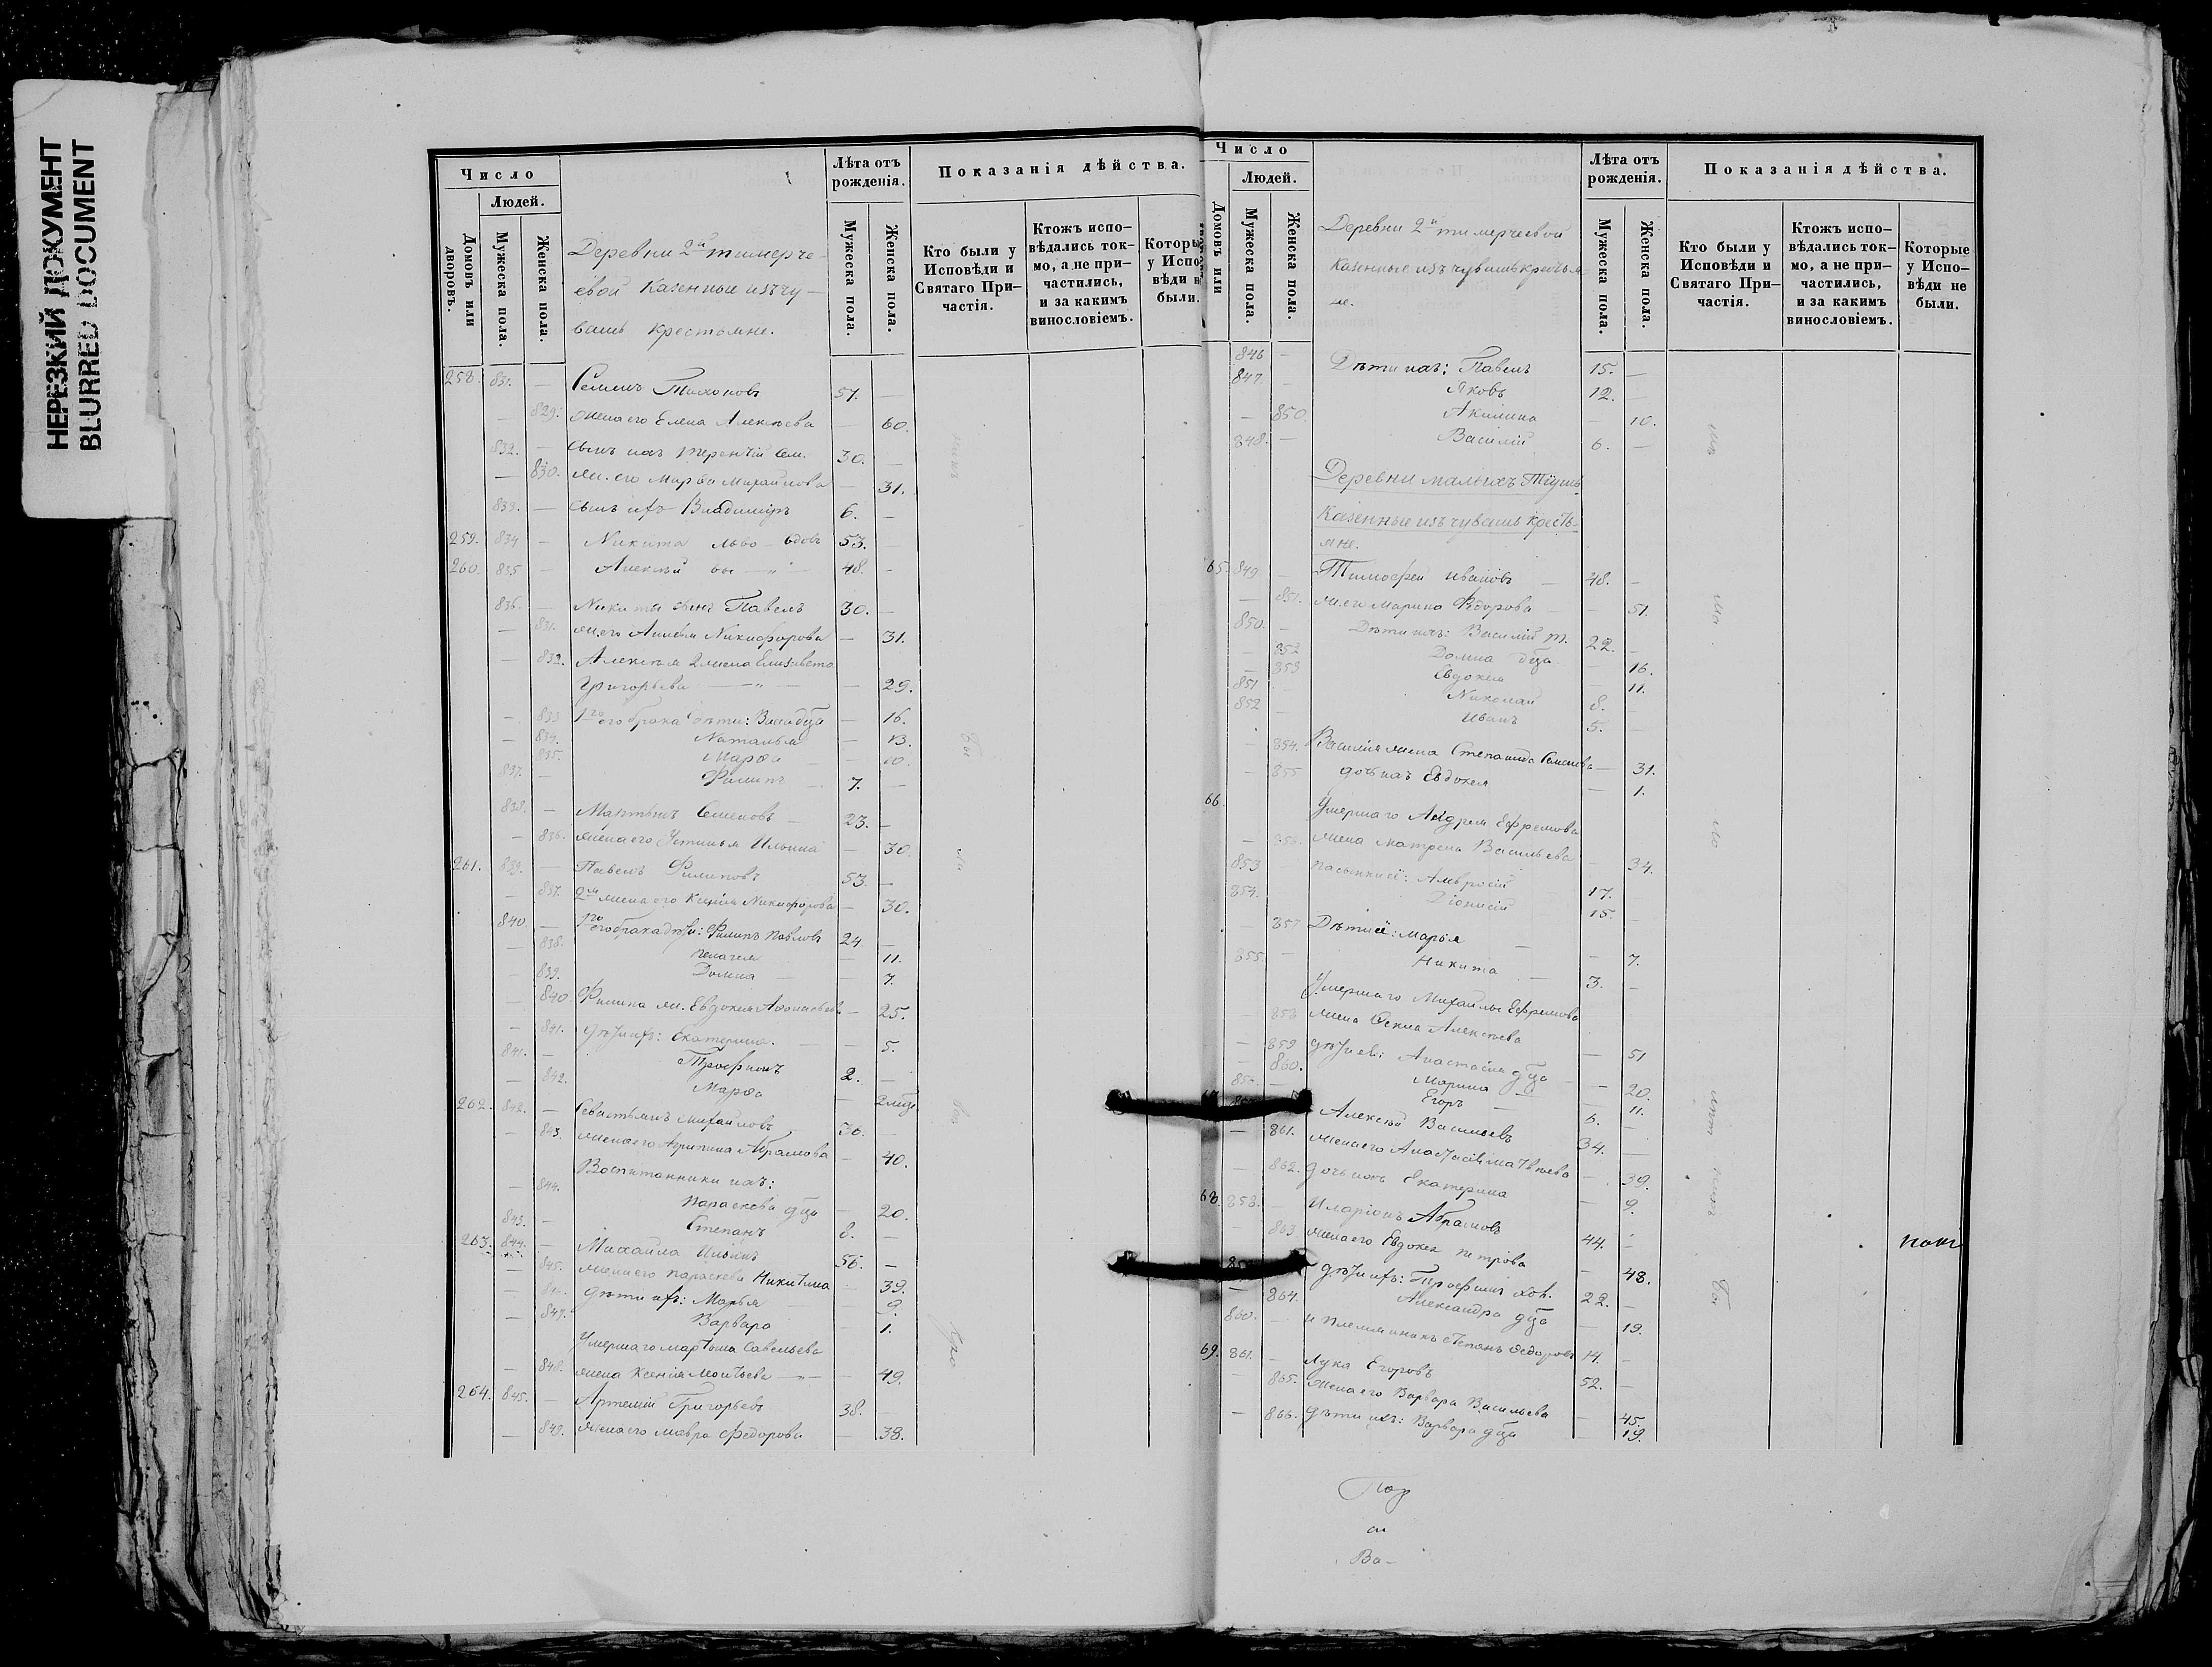 НЕРЕЗКИЙ ДОКУМЕНТ
BLURRED DOCUMENT
Число
Людей.
Домовъ или дворовъ.
Мужеска пола.
Женска пола.
Деревни 2й тимерче-
евой Казенные изъ чу-
вашъ крестьяне.
Лѣта отъ рожденія.
Мужеска пола.
Женска пола.
Показанія дѣйства.
Кто были у Исповѣди и Святаго При-частія.
Ктожъ испо-вѣдались ток-мо, а не при-частились, и за какимъ винословіемъ.
Которы у Испо вѣди н были.
258. 831. — Семенъ Тихоновъ 57. —
— 829. Жена его Елена Алексѣева — 60.
832. — Сынъ ихъ Терентій Сем. 30. —
— 830. Ж. его Марѳа Михайлова — 31.
833. — Сынъ ихъ Владимиръ 6. —
259. 834 — Никита Льво вдовъ 53. —
260. 835 — Алексѣй 48. —
836. — Никиты сынъ Павелъ 30. —
— 831. Ж. его Никифорова — 31.
— 832. Алексѣя 2 жена Елизавета
Григорьева — 29.
— 833 1го его брака дѣти: дца — 16.
— 834. Наталья — 13.
— 835. Марѳа — 10.
837. — Филипъ 7. —
838. — Мартынъ Семеновъ 23. —
— 836. Жена его Устинья Ильина — 30.
261. 839. — Павелъ Филиповъ 53. —
— 837. 2я жена его Ксенія Никифорова — 30.
840 — 1го его брака дѣти: Филипъ Павловъ 24 —
— 838. Пелагея — 11.
— 839. Домна — 7.
— 840 Филипа ж. Евдокия — 25.
— 841. Дѣти ихъ: Екатерина. — 5.
841. — Трофимъ 2. —
— 842. Марѳа — 2 мѣц
262. 842. — Севастьянъ Михайловъ 36. —
— 843. Жена его Агрипина Абрамова — 40.
Воспитанники ихъ:
— 844. Параскева дца — 20.
843. — Степанъ 8. —
263. 844. — Михаила Ильинъ 56. —
— 845. Жена его Параскева Никитина — 39.
— 846. Дѣти ихъ: Марья — 9.
— 847. Варвара — 1.
Умершаго Мартына Савельева
— 848. жена Ксенія — 49.
264. 845. — Артемій Григорьевъ 38. —
— 849. Жена его Мавра Федорова — 38.
Число
Людей.
Домовъ или
Мужеска пола.
Женска пола.
Деревни 2й тимерчеевой
Казенные изъ чувашъ крестья-
не.
Лѣта отъ рожденія.
Мужеска пола.
Женска пола.
Показанія дѣйства.
Кто были у Исповѣди и Святаго При-частія.
Ктожъ испо-вѣдались ток-мо, а не при-частились, и за какимъ винословіемъ.
Которые у Испо-вѣди не были.
846 — Дѣти ихъ: Павелъ 15. —
847. — Яковъ 12. —
— 850. Акилина — 10.
848. — Василій 6. —
Деревни малыхъ
Казенные изъ чувашъ кресть-
яне.
65. 849 — Тимофей Ивановъ 48. —
— 851. Ж. его Марина Ѳедорова — 51.
850. — Дѣти ихъ: Василій Т. 22. —
— 852 Домна дца — 16.
— 853 Евдокия — 11.
851 — Николай 8. —
852 — Иванъ 5. —
— 854. Василія жена Степанида Семенова — 31.
— 855 дочь ихъ Евдокея — 1.
66. Умершаго Андрея Ефремова
— 856. жена Матрена Васильева — 34.
853 Пасынки её: Амвросій 17. —
854. Діонисій 15. —
— 857 Дѣти её: Марья — 7.
855. — Никита 3. —
Умершаго Михайлы Ефремова
— 858 жена Ѳекла Алексѣева — 51
— 859 дѣти ея: Анастасія дца — 20.
— 860. Марина — 11.
856 — Егоръ 6. —
Алексѣй Васильевъ 34. —
— 861. Жена его Анастасія Матвѣева — 39.
— 862. дочь ихъ Екатерина — 9.
68. 858. — Иларіонъ Абрамовъ 44. —
— 863 Жена его Евдокея Петрова — 48.
дѣти ихъ: хол. 22. —
— 864. Александра дца — 19.
860. — и племянникъ Степанъ Федоровъ 14. —
69. 861. — Лука Егоровъ 52. —
— 865. Жена его Варвара Васильева — 45.
— 866. Дѣти ихъ: Варвара дца — 19.
Ва-